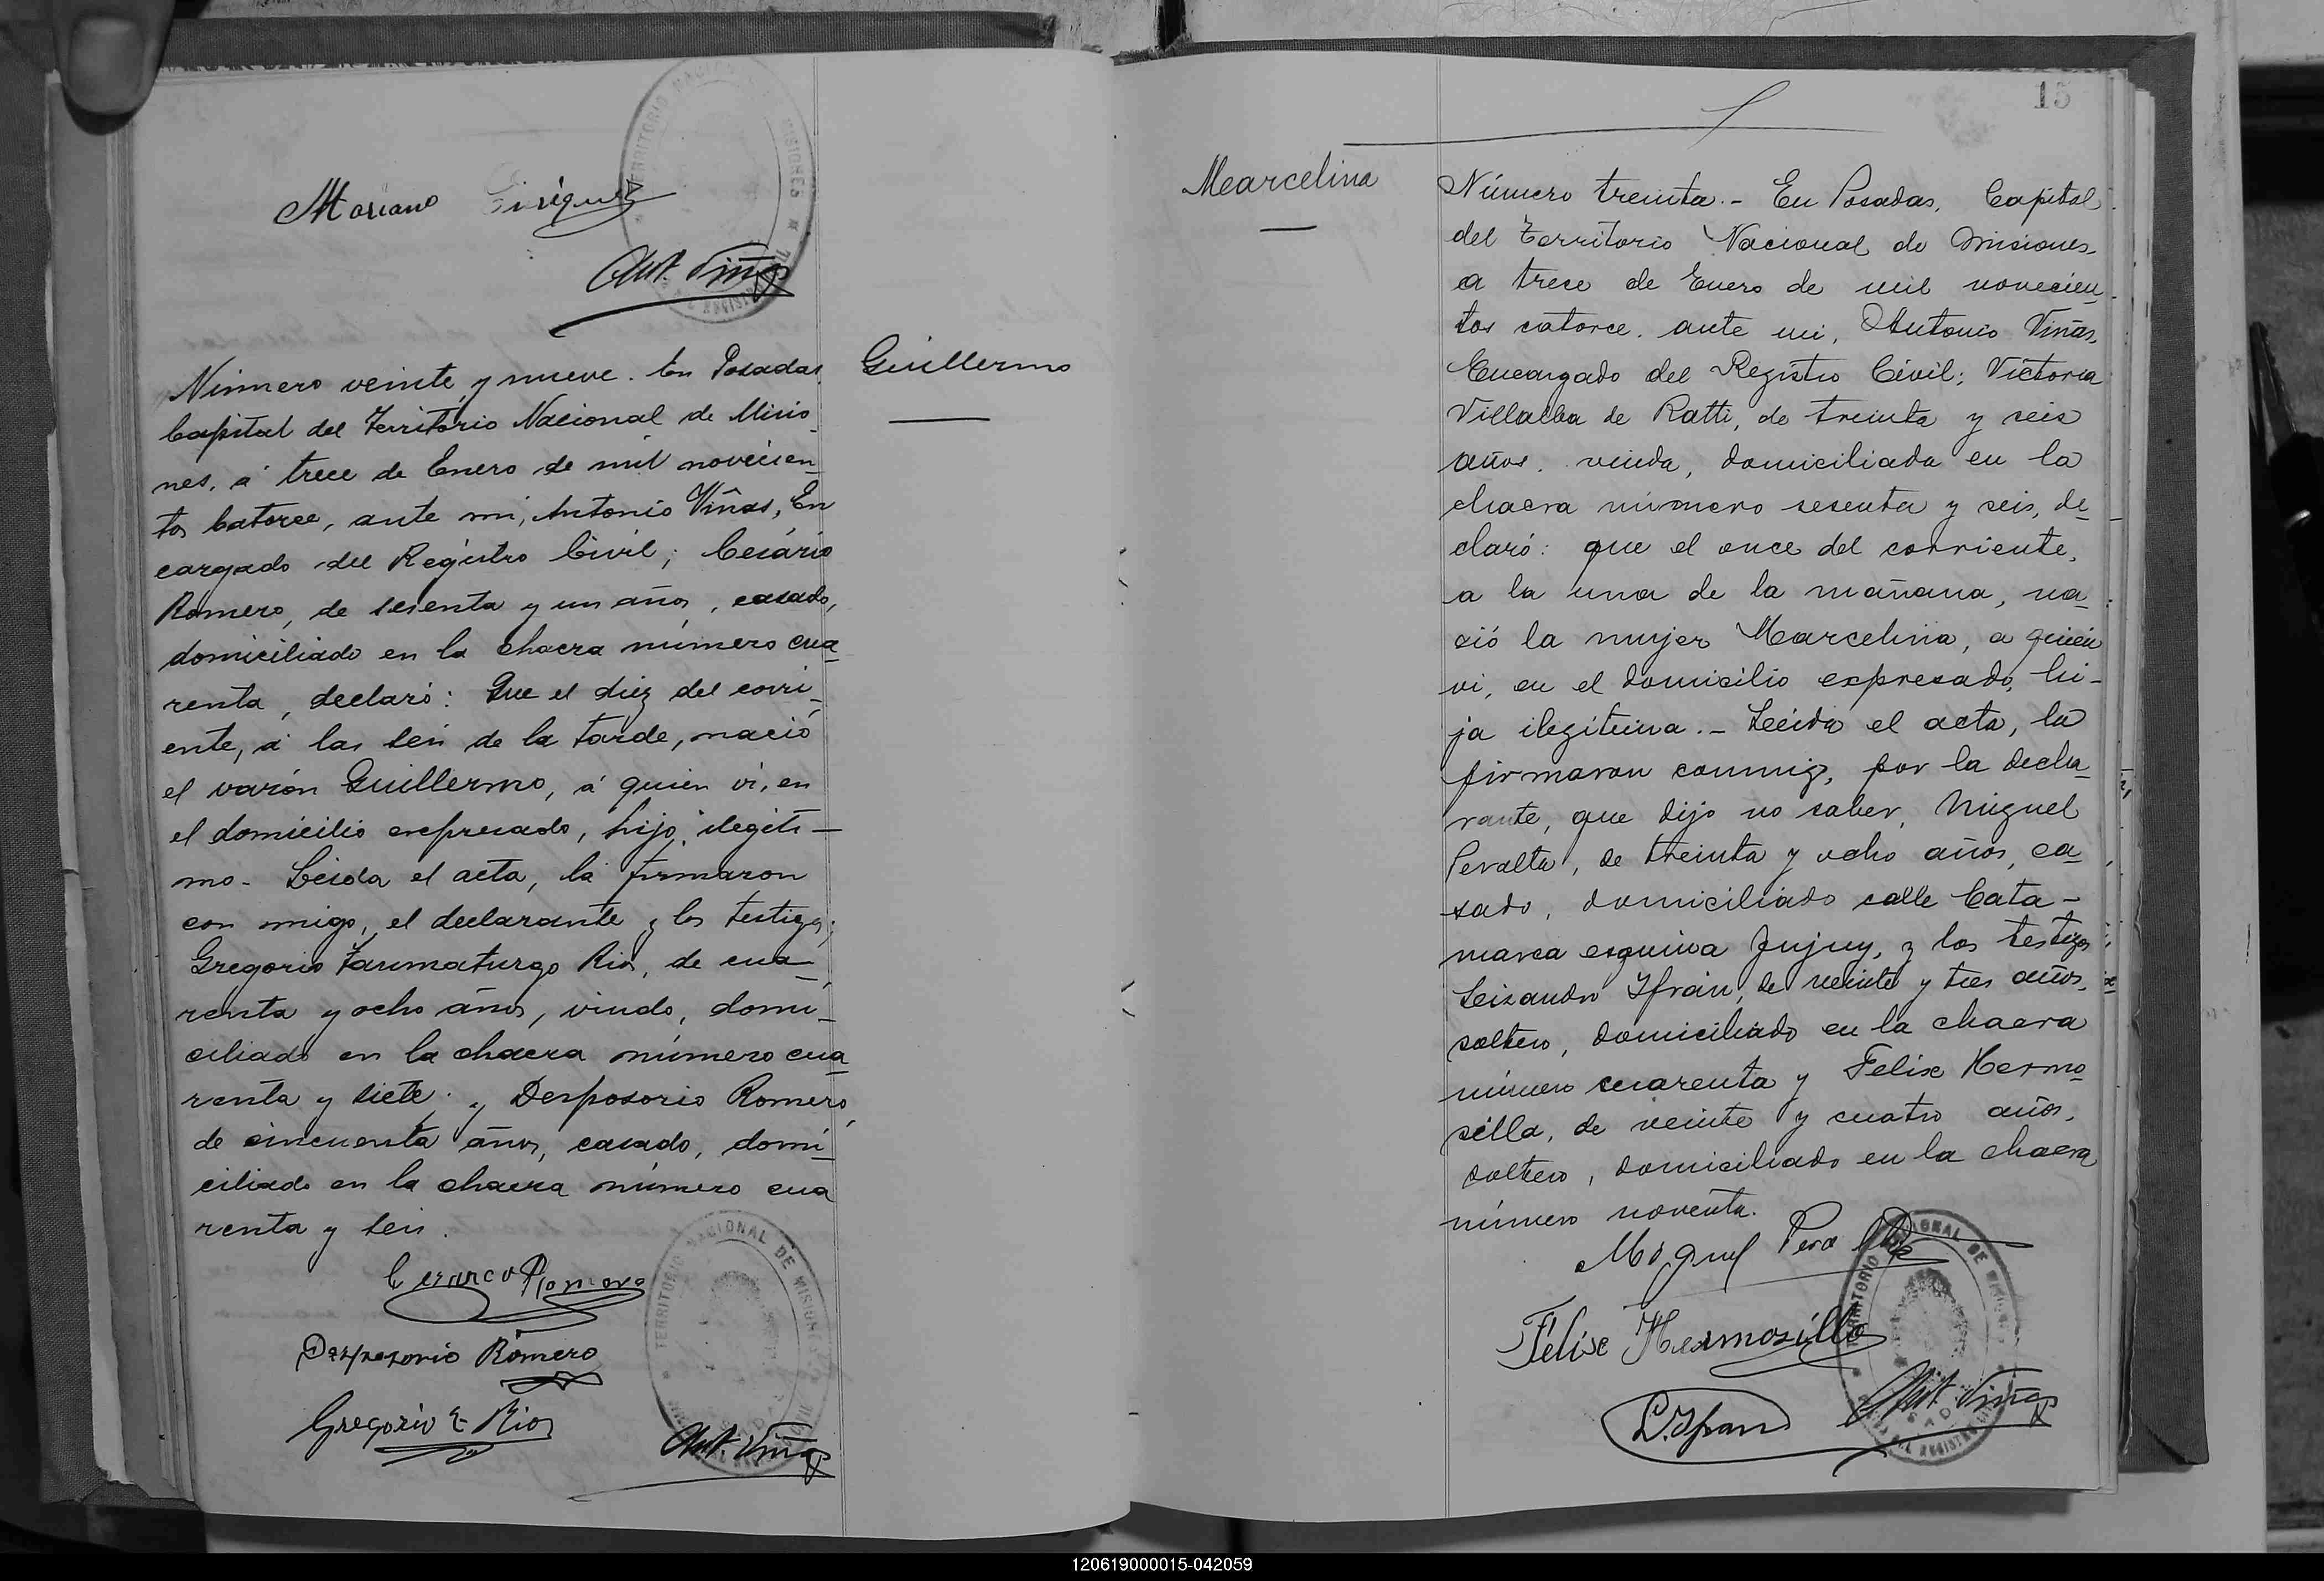 Mariano
Ant. Viñas
Número veinte y nueve. En Posadas,
Capital del Territorio Nacional de Misio_
nes, á trece de Enero de mil novecien_
tos Catorce, ante mi, Antonio Viñas, En
cargado del Registro Civil; Cesário
Romero, de sesenta y un años, casado,
domiciliado en la chacra número cua_
renta, declaró: Que el diez del corri_
ente, á las seis de la tarde, nació
el varón Guillermo, á quien vi, en
el domicilio expresado, hijo ilegíti_
mo. Leida el acta, la firmaron
con migo, el declarante y los testigos;
Gregorio Taumaturgo Rios, de cua_
renta y ocho años, viudo, domi_
ciliado en la chacra número cua_
renta y siete. y Desposorio Romero,
de cincuenta años, casado, domi_
ciliado en la chacra número cua
renta y seis.
Romero
Desposorio Romero
Gregorio T. Rios
Ant. Viñas
TERRITORIO NACIONAL DE MISIONES
Guillermo
15
Marcelina
Número treinta.- En Posadas, Capital
del Territorio Nacional de Misiones,
a trece de Enero de mil novecien_
tos catorce. ante mi, Antonio Viñas,
Encargado del Registro Civil; Victoria
Villalba de Ratti, de treinta y seis
años, viuda, domiciliada en la
chacra número sesenta y seis, de_
claró: que el once del corriente,
a la una de la mañana, na_
ció la mujer Marcelina, a quien
vi, en el domicilio expresado, hi_
ja ilegitima.- Leida el acta, la
firmaron conmigo, por la decla_
rante, que dijo no saber, Miguel
Peralta, de treinta y ocho años, ca_
sado, domiciliado calle Cata-
marca esquina Jujuy, y los testigos
Leisandro Ifrán, de veinte y tres años,
soltero, domiciliado en la chacra
número cuarenta y Felix Hermo_
silla, de veinte y cuatro años,
soltero, domiciliado en la chacra
número noventa.
Miguel Peralta
Félix Hermosilla
L. Ifran
Ant. Viñas
120619000015-042059